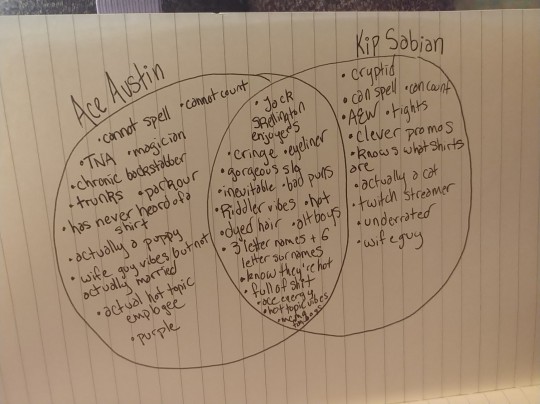 Ace Austin
Kip Sabian
• cannot spell • cannot count
• TNA • magician
• chronic backstabber
• trunks • parkour
• has never heard of a
shirt
• actually a puppy
• wife guy vibes but not
actually married
• actual hot topic
employee
• purple
• Jack
Skellington
enjoyers
• cringe • eyeliner
• gorgeous
• inevitable • bad puns
• Riddler vibes • hot
• dyed hair • alt boys
• 3 letter names + 6
letter surnames
• know they're hot
• full of shit
• ace energy
• hot topic vibes
• cryptid
• can spell • can count
• AEW • tights
• clever promos
• knows what shirts
are
• actually a cat
• twitch streamer
• underrated
• wife guy